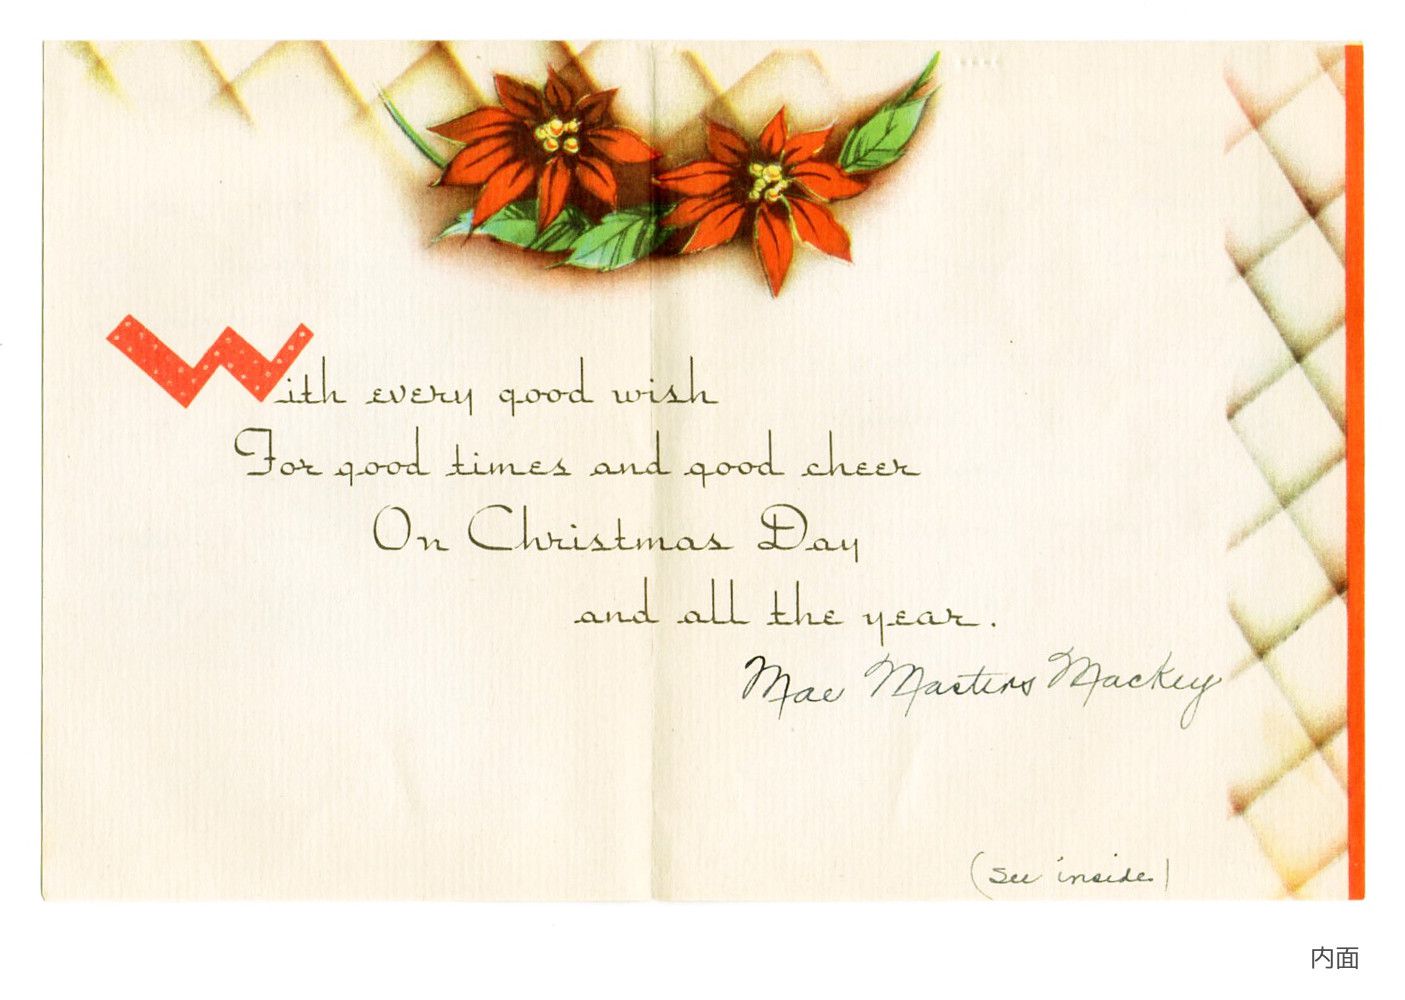 With every good wish
For good times and good cheer
On Christmas Day
and all the year.
Mae Masters Mackey
(see inside)
内面